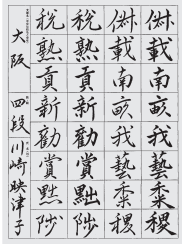 俶載南畝我藝黍稷
俶載南畝我藝黍稷
税熟貢新勧賞黜陟
税熟貢新勧賞黜陟
大阪 四段 川崎映津子